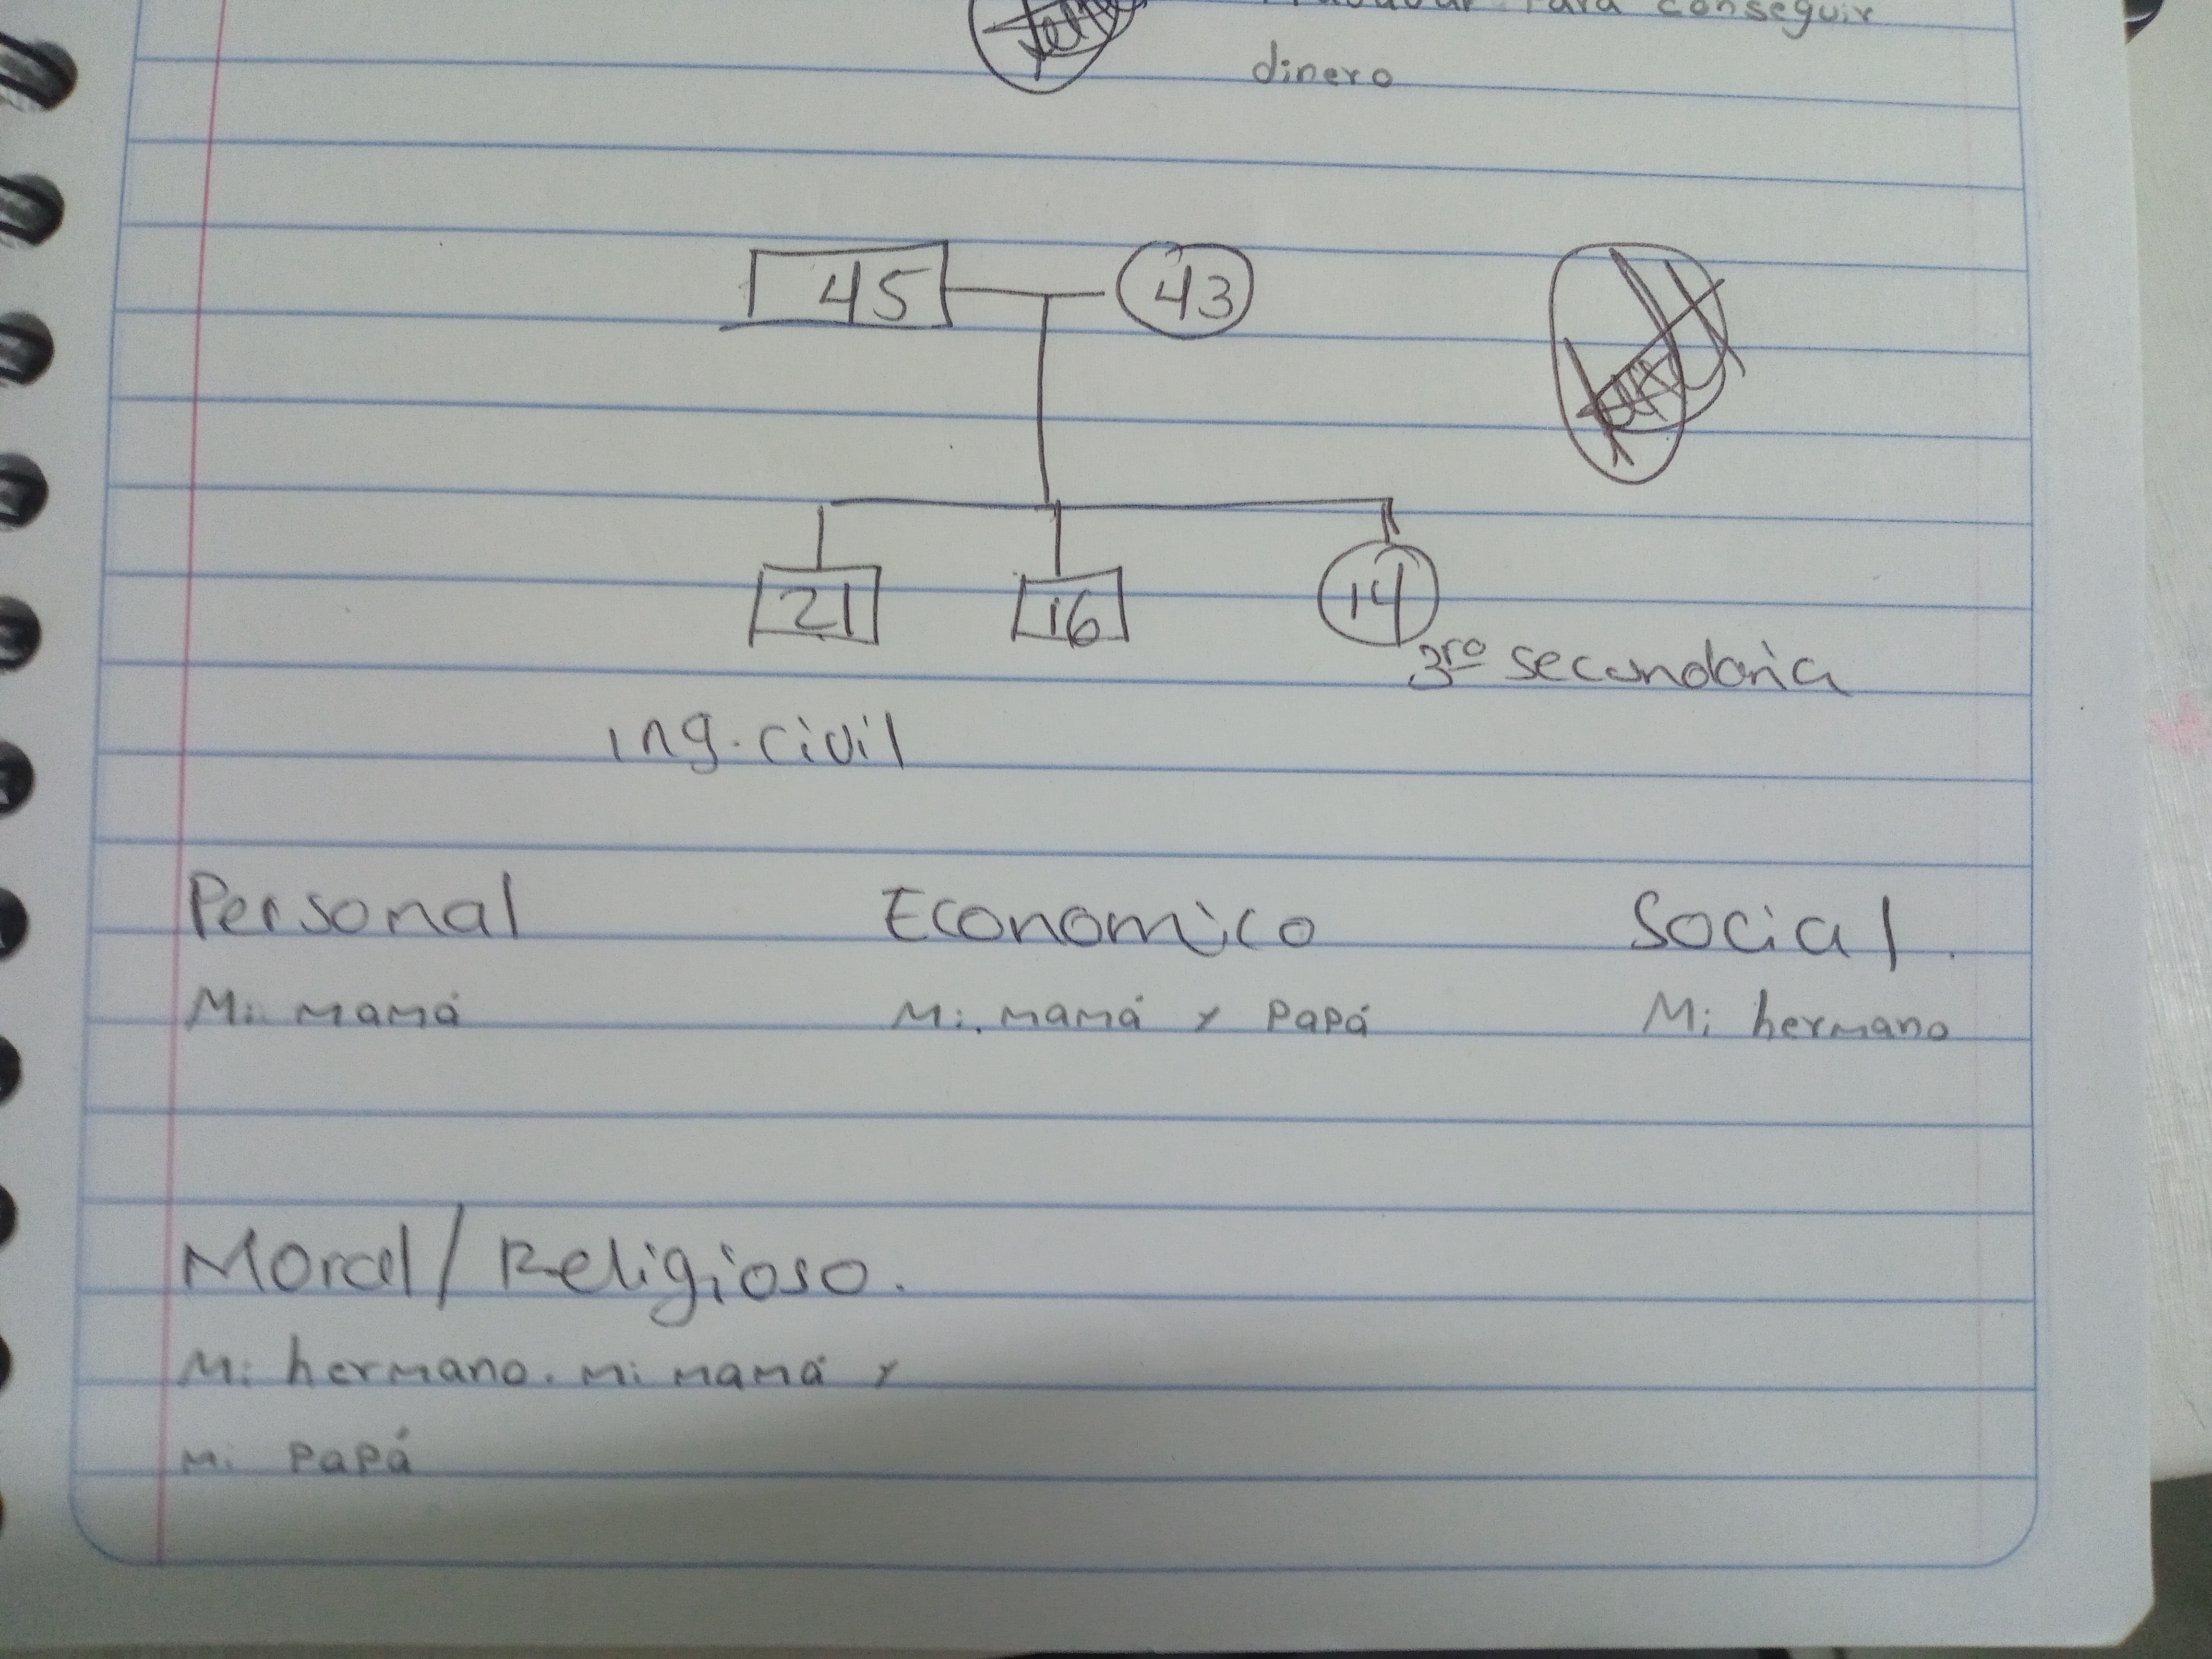 Para conseguir
dinero
45 43
21 16 14
3ro secundaria
ing. civil
Personal Economico Social.
Mi mamá Mi. mamá y Papá Mi hermano
Moral/Religioso.
Mi hermano. mi mamá y
mi Papá